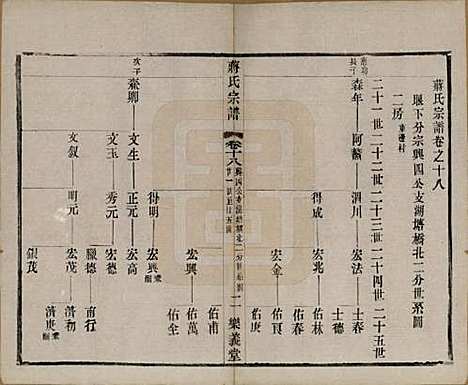 蔣氏宗譜卷之十八
堰下分宗興四公支湖塘橋北二分世系圖
二房 東邊村
二十一世 二十二世 二十三世 二十四世 二十五世
長子
森年 阿麟 泗川 宏法 士德
士春
得成 宏兆 佑林
宏金 佑良
佑庚
蔣氏宗譜 卷十八 二 樂義堂
宏興 佑甫
佑萬
佑全
次子
森卿 文生 正元 宏高
得明 宏興
文玉 秀元 宏德
臘德 南行
文叙 明元 宏茂 清初
清庚
銀茂